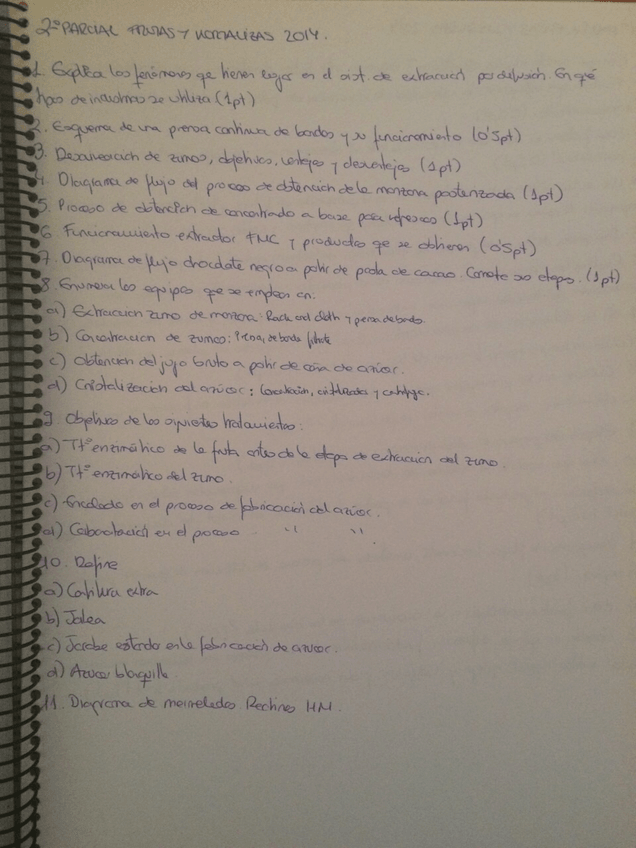 2º PARCIAL FRUTAS Y HORTALIZAS 2014.
1. Explica los fenómenos que tienen lugar en el sist. de extracción por difusión. En qué
tipos de industrias se utiliza (1pt)
2. Esquema de una prensa continua de bandas y su funcionamiento (0'5pt)
3. Desaireación de zumos, objetivos, ventajas y desventajas (1pt)
4. Diagrama de flujo del proceso de obtención de la manzana pasteurizada (1pt)
5. Proceso de obtención de concentrado a base para refrescos (1pt)
6. Funcionamiento extractor FMC y productos que se obtienen (0'5pt)
7. Diagrama de flujo chocolate negro a partir de pasta de cacao. Comenta sus etapas. (1pt)
8. Enumera los equipos que se emplean en:
a) Extracción zumo de manzana: Rack and cloth y prensa de bandas.
b) Concentración de zumos: Prensa de banda
c) Obtención del jugo bruto a partir de caña de azúcar.
d) Cristalización del azúcar: Concentración, cristalizador y centrífuga.
9. Objetivo de los siguientes tratamientos:
a) Ttº enzimático de la fruta antes de la etapa de extracción del zumo.
b) Ttº enzimático del zumo.
c) Encalado en el proceso de fabricación del azúcar.
d) Carbonatación en el proceso " ".
10. Define
a) Confitura extra
b) Jalea
c) Jarabe estándar en la fabricación de azúcar.
d) Azúcar blanquilla
11. Diagrama de mermeladas. Pectinas HM.